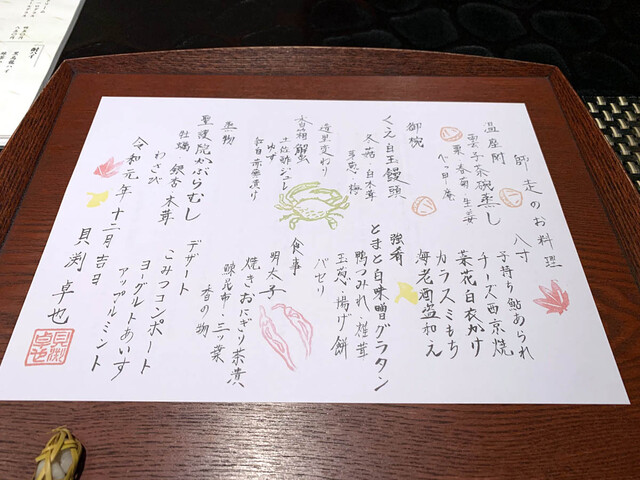 師走のお料理
温座附
雲子茶碗蒸し
栗・春菊・生姜
べっ甲庵
御椀
くえ白玉饅頭
冬菇・白木茸
芽葱・梅
造里変わり
香箱蟹
土佐酢ジュレ
ゆず
紅白蕪漬け
蒸物
聖護院かぶらむし
牡蠣・銀杏・木茸
わさび
八寸
子持ち鮎あられ
チーズ西京焼
菜花白衣かけ
カラスミもち
海老酒盗和え
強肴
とまと白味噌グラタン
鴨つみれ・椎茸
玉葱・揚げ餅
パセリ
食事
明太子
焼きおにぎり茶漬
とろろ昆布・三ツ葉
香の物
デザート
こみつコンポート
ヨーグルトあいす
アップルミント
令和元年十二月吉日
貝渕卓也
貝渕
卓也